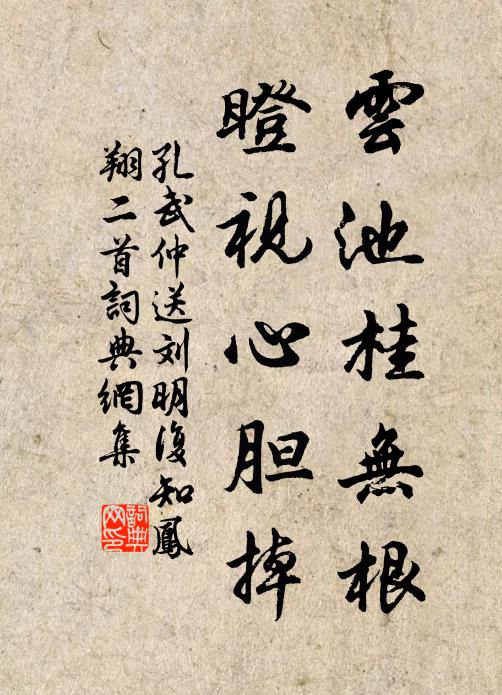 雲池桂無根
瞪視心胆掉
孔武仲送刘明復知鳳
翔二首詞典網集
詞典网印